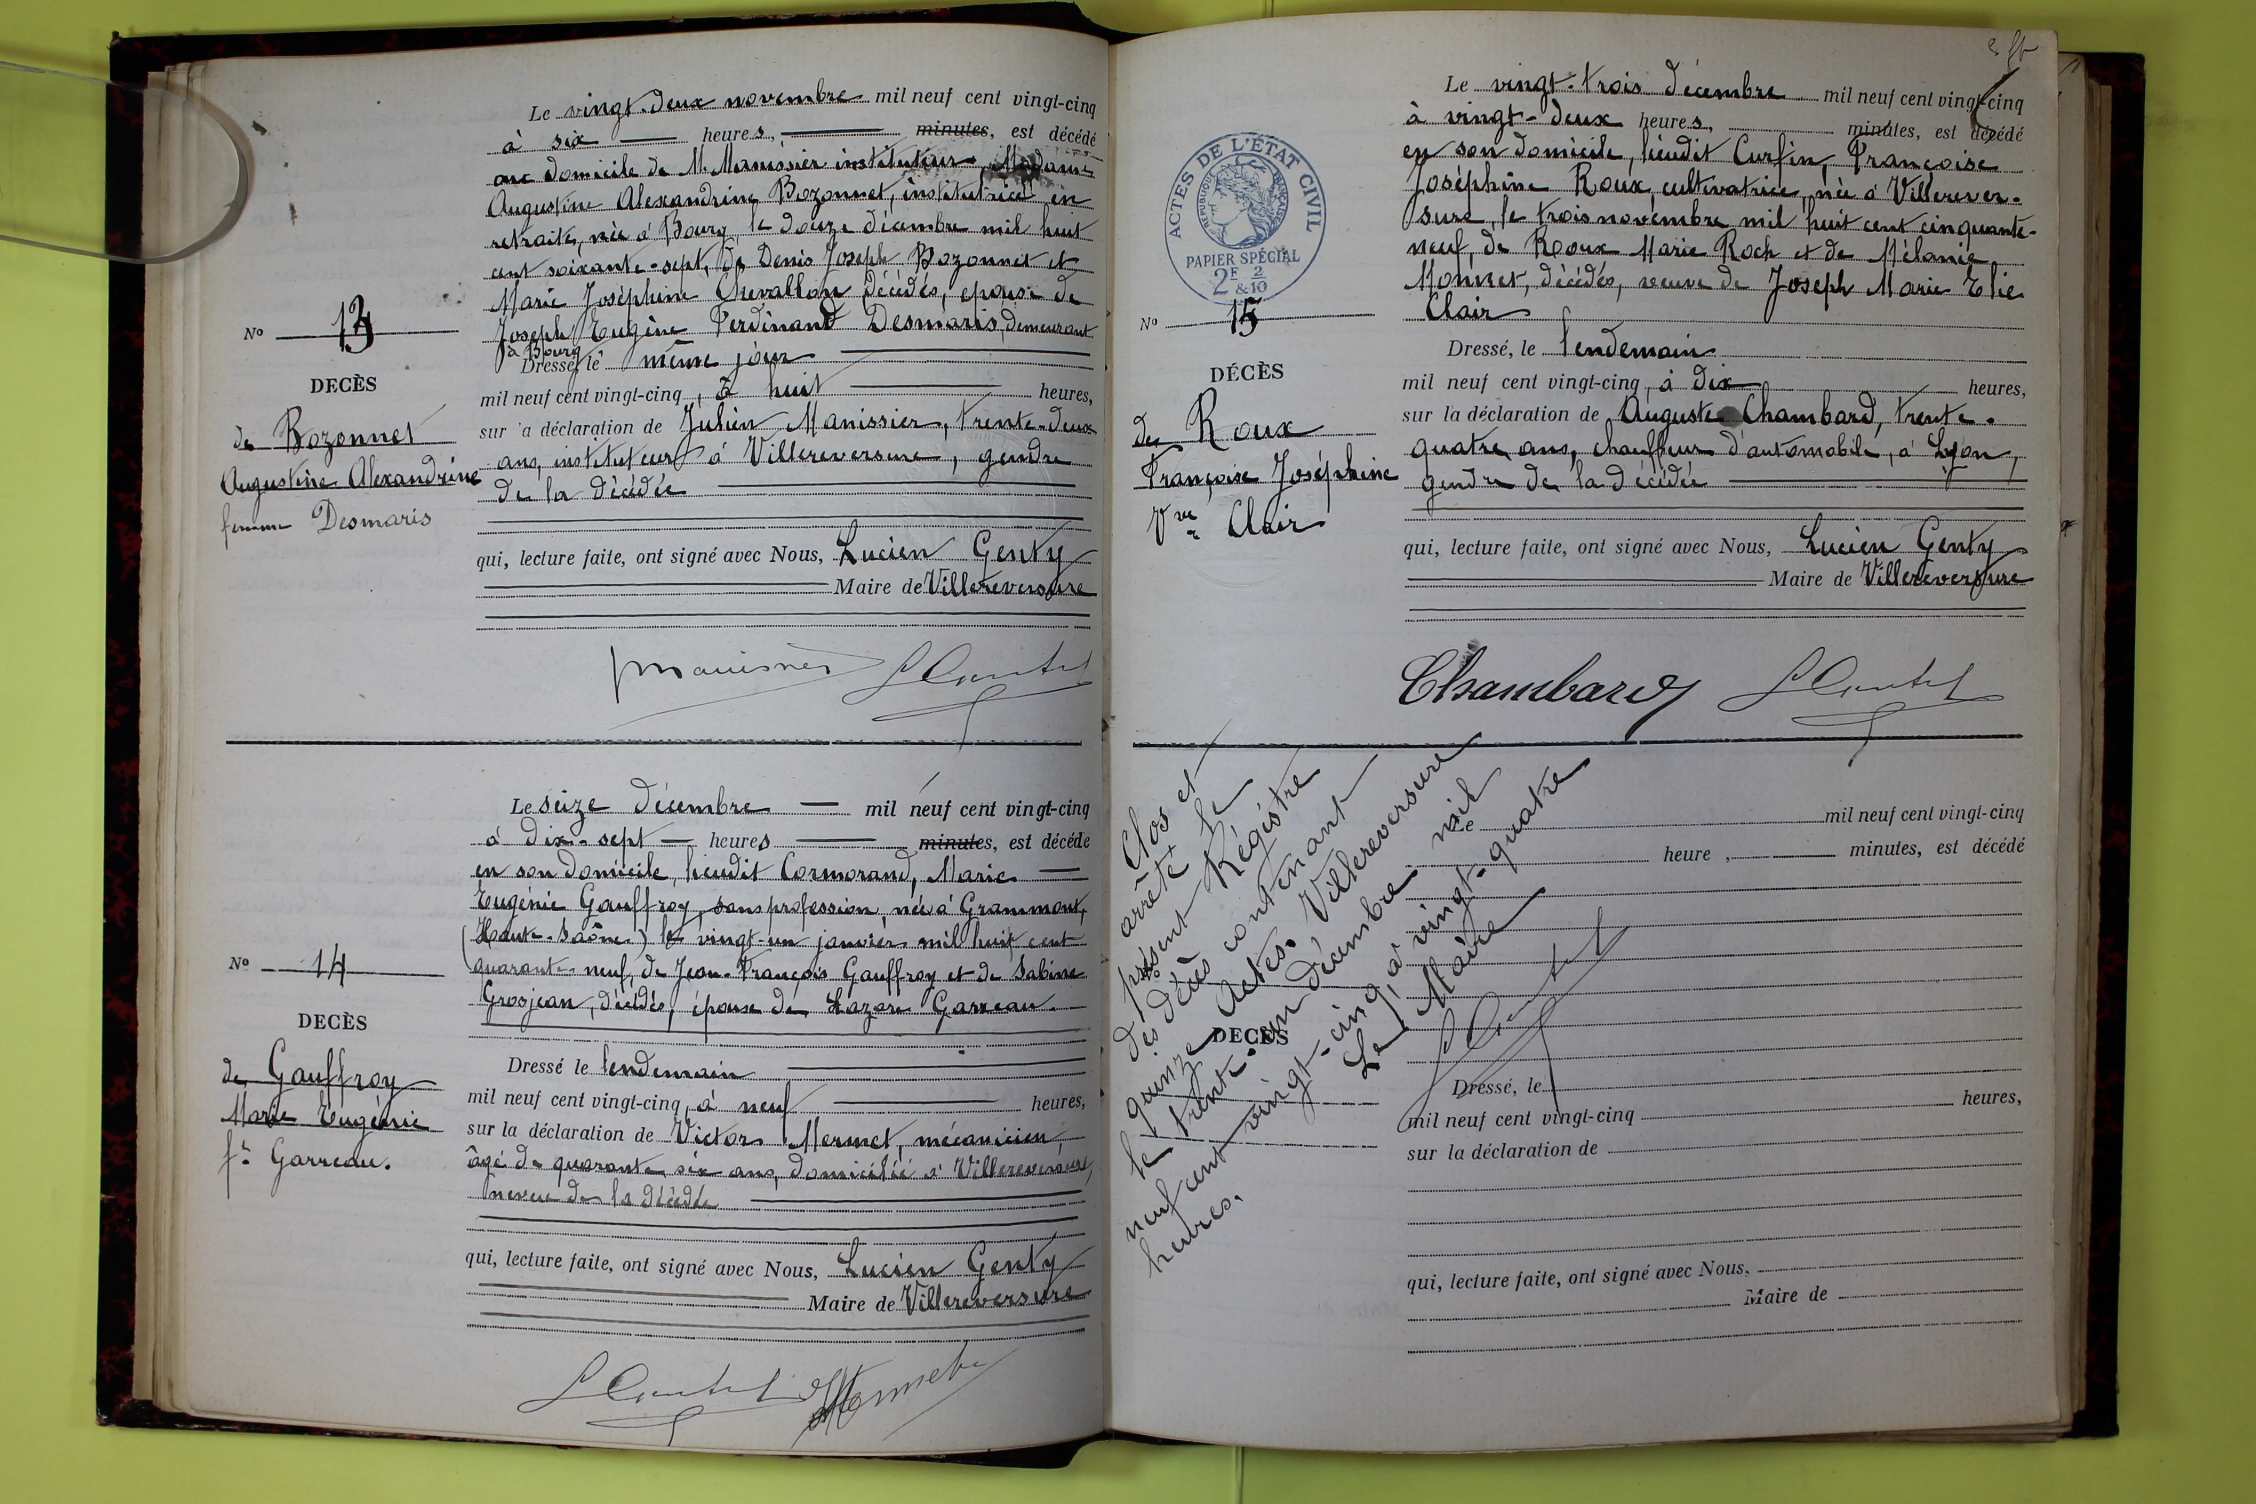 Le vingt-deux novembre mil neuf cent vingt-cinq
à six heures, minutes, est décédé
au domicile de M. Manissier instituteur, Madame
Augustine Alexandrine Bozonnet, institutrice en
retraite, née à Bourg, le douze décembre mil huit
cent soixante-sept, de Denis Joseph Bozonnet et
Marie Joséphine Chevallon décédés, épouse de
Joseph Eugène Ferdinand Desmaris, demeurant
à Bourg
Dressé, le même jour
mil neuf cent vingt-cinq, à huit heures,
sur a déclaration de Julien Manissier, trente-deux
ans, instituteur à Villereversure, gendre
de la décédée
qui, lecture faite, ont signé avec Nous, Lucien Genty
Maire de Villereversure
No 13
DECÈS
de Bozonnet
Augustine Alexandrine
femme Desmaris
Le seize décembre mil neuf cent vingt-cinq
à dix-sept heures minutes, est décédé
en son domicile, lieudit Cormorand, Marie
Eugénie Gauffroy, sans profession, née à Grammont,
(Haute-Saône) le vingt-un janvier mil huit cent
quarante-neuf, de Jean-François Gauffroy et de Sabine
Grosjean, décédés, épouse de Lazare Garreau.
Dressé le lendemain
mil neuf cent vingt-cinq, à neuf heures,
sur la déclaration de Victor Mermet, mécanicien,
âgé de quarante six ans, domicilié à Villereversure,
neveu de la décédée
qui, lecture faite, ont signé avec Nous, Lucien Genty
Maire de Villereversure
No 14
DECÈS
de Gauffroy
Marie Eugénie
fe Garreau.
Le vingt-trois décembre mil neuf cent vingt-cinq
à vingt-deux heures, minutes, est décédé
en son domicile, lieudit Curfin, Françoise
Joséphine Roux, cultivatrice, née à Villerever-
sure, le trois novembre mil huit cent cinquante-
neuf, de Roux Marie Roch et de Mélanie
Monnet, décédés, veuve de Joseph Marie Elie
Clair
Dressé, le lendemain
mil neuf cent vingt-cinq, à dix heures,
sur la déclaration de Auguste Chambard, trente-
quatre ans, chauffeur d'automobile, à Lyon,
gendre de la décédée
qui, lecture faite, ont signé avec Nous, Lucien Genty
Maire de Villereversure
Chambard
ACTES DE L'ÉTAT CIVIL
RÉPUBLIQUE FRANÇAISE
PAPIER SPÉCIAL
2F 2
& 10
No 15
DÉCÈS
de Roux
Françoise Joséphine
Vve Clair
Clos et
arrêté le
présent Régistre
des décès contenant
quinze Actes. Villereversure
le trente-un décembre mil
neuf cent vingt-cinq, à vingt-quatre
heures.
Le Maire
Le mil neuf cent vingt-cinq
heure , minutes, est décédé
DECÈS
Dressé, le
mil neuf cent vingt-cinq heures,
sur la déclaration de
qui, lecture faite, ont signé avec Nous,
Maire de